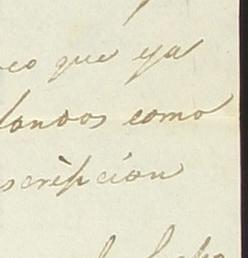 oco que ya
landos como
scripcion